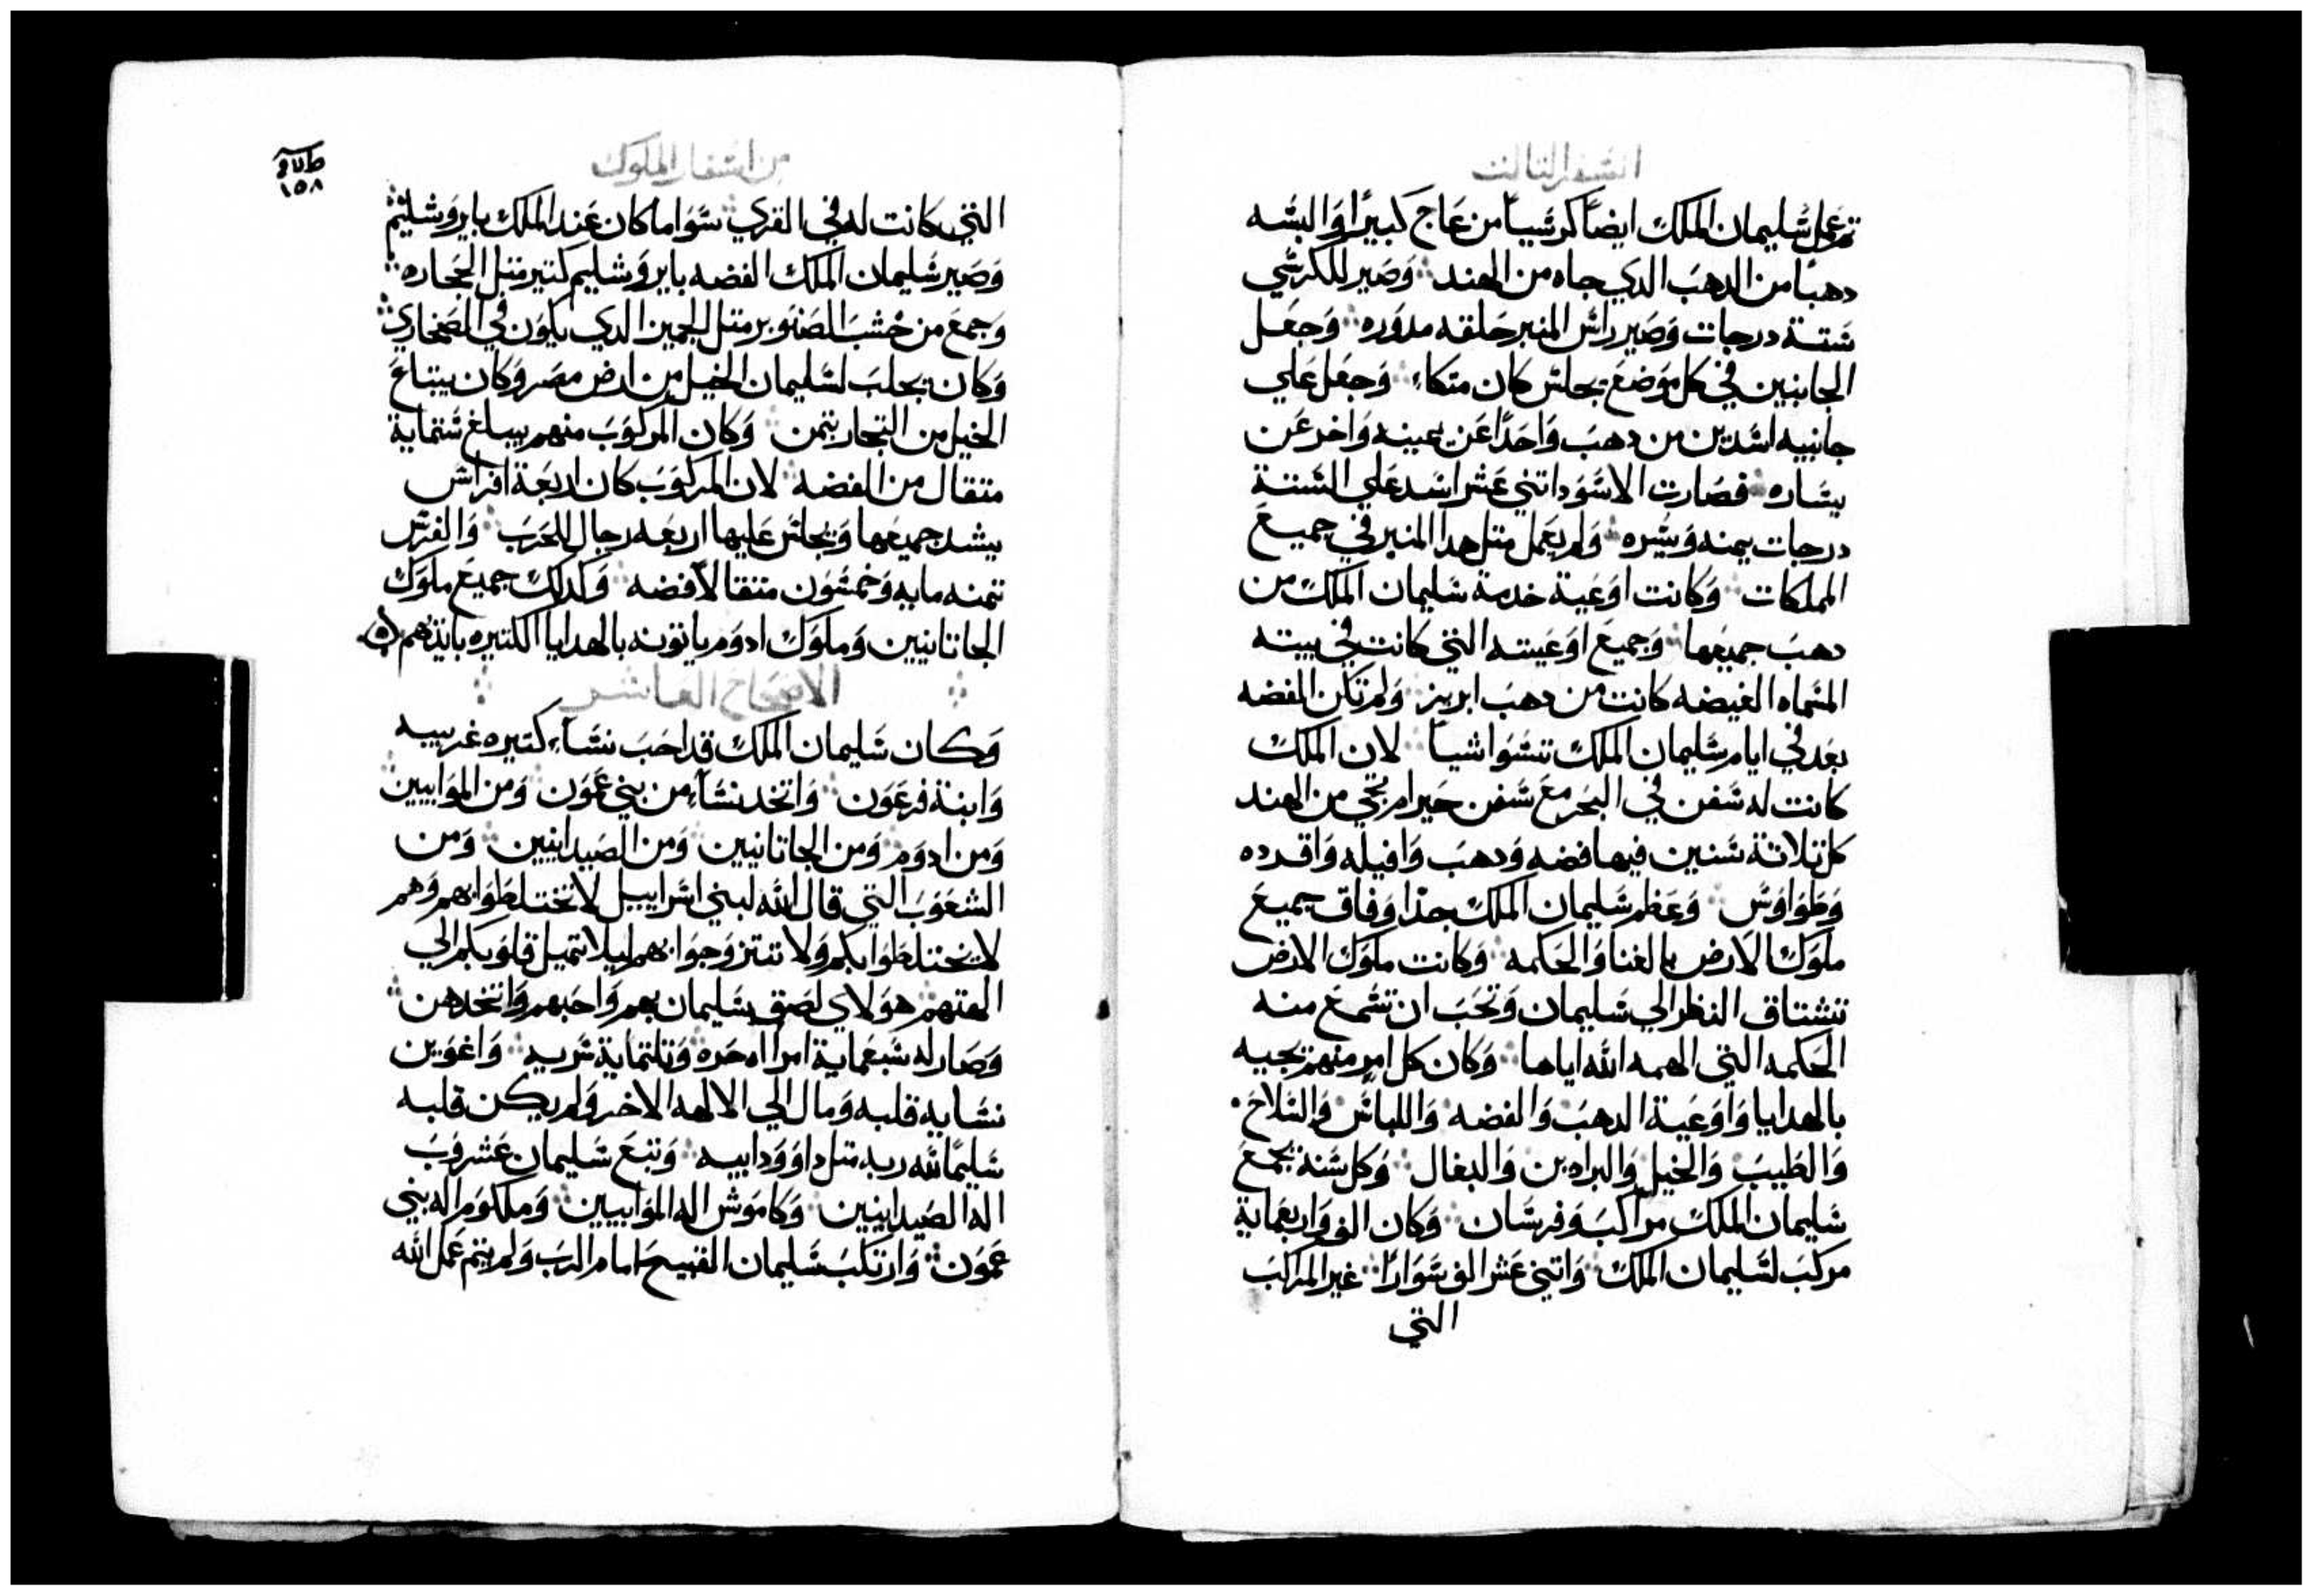 السفر التالت
تم عمل سليمان الملك ايضًا كرسيًا من عاج كبيرًا والبسه
دهبًا من الدهب الدي جاه من الهند وصير للكرسي
ستة درجات وصير راس المنبر حلقه مدوره وجعل
الجانبين في كل موضع يجلس كان متكاء وجعل علي
جانبيه اسدين من دهب واحدًا عن يمينه واخر عن
يساره فصارت الاسود اتني عشر اسد علي الستة
درجات يمنه ويسره ولم يعمل متل هدا المنبر في جميع
المملكات وكانت اوعية خدمة سليمان الملك من
دهب جميعها وجميع اوعيته التي كانت في بيته
المسماه الغيضه كانت من دهب ابريز ولم تكن الفضه
بعد في ايام سليمان الملك تسوا شيًا لان الملك
كانت له سفن في البحر مع سفن حيرام تجي من الهند
كل تلاتة سنين فيها فضه ودهب وافيله واقرده
وطواوس وعظم سليمان الملك جدًا وفاق جميع
ملوك الارض بالغنا والحكمه وكانت ملوك الارض
تشتاق النظر الي سليمان وتحب ان تسمع منه
الحكمه التي الهمه الله اياها وكان كل امر منهم يجيه
بالهدايا واوعية الدهب والفضه واللباس والسلاح
والطيب والخيل والبرادين والبغال وكل سنة يجمع
سليمان الملك مراكب وفرسان وكان الف واربعماية
مركب لسليمان الملك واتني عشر الف سوارًا غير المراكب
التي
من اسفار الملوك
١٥٨
التي كانت له في القري سوا ما كان عند الملك بايروشليم
وصير سليمان الملك الفضه بايروشليم كتير متل الحجاره
وجمع من خشب الصنوبر متل الجميز الدي يكون في الصحاري
وكان يجلب لسليمان الخيل من ارض مصر وكان يبتاع
الخيل من التجار بتمن وكان المركوب منهم يبلغ ستماية
متقال من الفضه لان المركوب كان اربعة افراس
يشد جميعها ويجلس عليها اربعه رجال للحرب والفرس
تمنه مايه وخمسون متقالا فضه وكدلك جميع ملوك
الجاتانيين وملوك ادوم ياتونه بالهدايا الكتيره بايديهم
الاصحاح العاشر
وكان سليمان الملك قد احب نساء كتيره غريبه
وابنة فرعون واتخد نساء من بني عمون ومن الموابيين
ومن ادوم ومن الجاتانيين ومن الصيدانيين ومن
الشعوب التي قال الله لبني اسراييل لا تختلطوا بهم وهم
لا يختلطوا بكم ولا تتزوجوا بهم ليلا تميل قلوبكم الي
الهتهم هولاي لصق سليمان بهم واحبهم واتخدهن
وصار له سبعماية امراه حره وتلتماية سريه واغوين
نسايه قلبه ومال الي الالهه الاخر ولم يكن قلبه
سليمًا لله ربه متل داوود ابيه وتبع سليمان عشروب
اله الصيدانيين وكاموش اله الموابيين وملكوم اله بني
عمون وارتكب سليمان القبيح امام الرب ولم يتم عمل الله